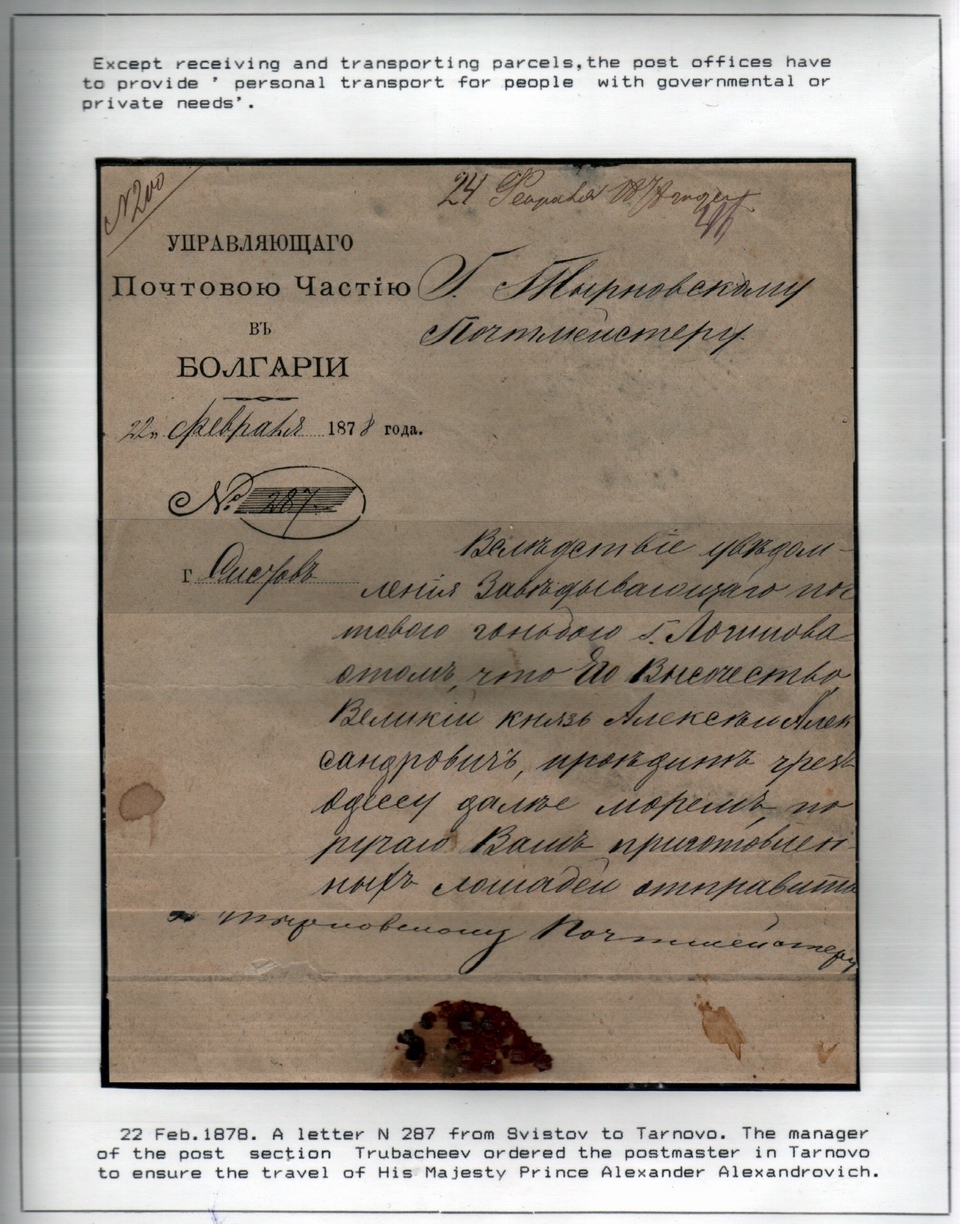 Except receiving and transporting parcels,the post offices have
to provide ' personal transport for people with governmental or
private needs'.
N 200
24 Февраля 1878 года
УПРАВЛЯЮЩАГО
Почтовою Частію
ВЪ
БОЛГАРІИ
22 февраля 1878 года.
№ 287
г Систовъ
Г. Тырновскому
Почтмейстеру.
Вслѣдствіе увѣдом-
ленія Завѣдывающаго поч
товою гоньбою г. Логинова
отомъ, что Его Высочество
Великій князь Алексѣй Алек
сандровичъ, проѣдитъ чрезъ
Одессу далѣе моремъ, по
ручаю Вамъ приготовлен-
ныхъ лошадей отправить
Тырновскому Почтмейстеру
22 Feb.1878. A letter N 287 from Svistov to Tarnovo. The manager
of the post section Trubacheev ordered the postmaster in Tarnovo
to ensure the travel of His Majesty Prince Alexander Alexandrovich.